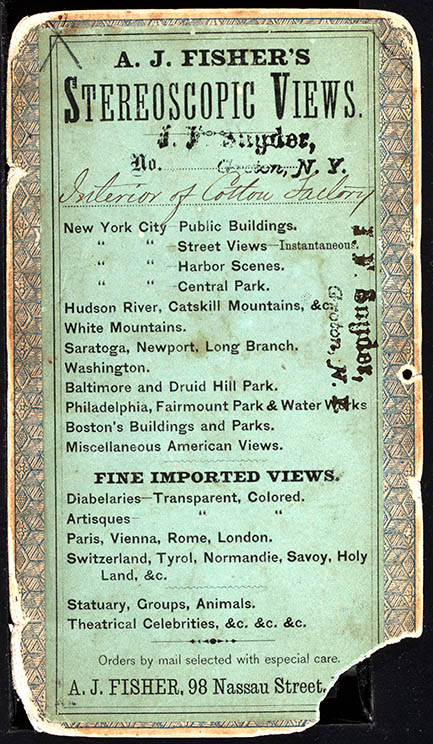 A. J. FISHER'S
STEREOSCOPIC VIEWS.
Snyder,
No. Groton, N. Y.
Interior of Cotton Factory
New York City—Public Buildings.
“ “ Street Views—Instantaneous.
“ “ Harbor Scenes.
“ “ Central Park.
Hudson River, Catskill Mountains, &c.
White Mountains.
Saratoga, Newport, Long Branch.
Washington.
Baltimore and Druid Hill Park.
Philadelphia, Fairmount Park & Water Works
Boston's Buildings and Parks.
Miscellaneous American Views.
FINE IMPORTED VIEWS.
Diabelaries—Transparent, Colored.
Artisques— “ “
Paris, Vienna, Rome, London.
Switzerland, Tyrol, Normandie, Savoy, Holy
Land, &c.
Statuary, Groups, Animals.
Theatrical Celebrities, &c. &c. &c.
Orders by mail selected with especial care.
A. J. FISHER, 98 Nassau Street,
Snyder,
Groton, N.